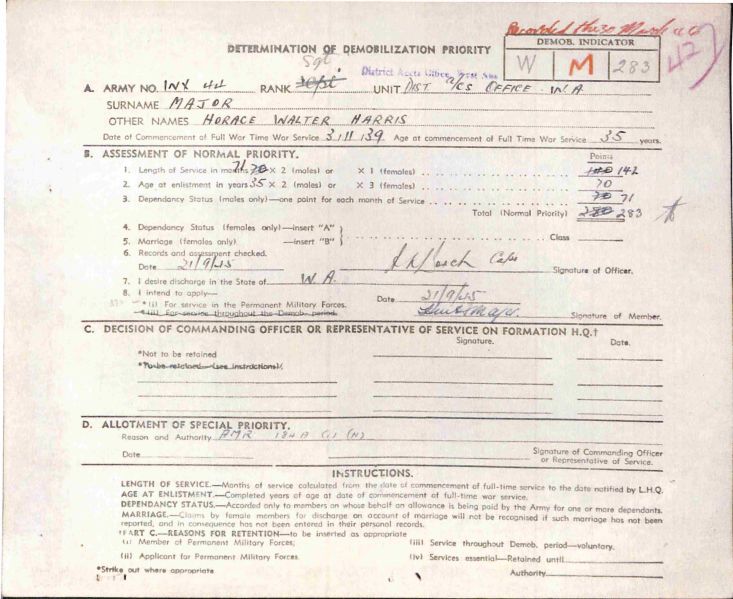 Recorded
DETERMINATION OF DEMOBILIZATION PRIORITY
DEMOB. INDICATOR
W M 283
42
Sgt
District Accts Office
A. ARMY NO. WX 44 RANK UNIT DIST A/CS OFFICE W.A
SURNAME MAJOR
OTHER NAMES HORACE WALTER HARRIS
Date of Commencement of Full War Time War Service 3/11/39 Age at commencement of Full Time War Service 35 years.
B. ASSESSMENT OF NORMAL PRIORITY.
Points
1. Length of Service in months 71 70 × 2 (males) or × 1 (females) 140 142
2. Age at enlistment in years 35 × 2 (males) or × 3 (females) 70
3. Dependency Status (males only)—one point for each month of Service 70 71
Total (Normal Priority) 280 283
4. Dependency Status (females only)—insert "A"
5. Marriage (females only) —insert "B" Class
6. Records and assessment checked.
Date 21/9/45 Capt Signature of Officer.
7. I desire discharge in the State of W.A.
8. I intend to apply—
*(i) For service in the Permanent Military Forces. Date 21/9/45
*(ii) For service throughout the Demob. period. Signature of Member.
C. DECISION OF COMMANDING OFFICER OR REPRESENTATIVE OF SERVICE ON FORMATION H.Q.†
Signature. Date.
*Not to be retained
*To be retained—(see instructions)
D. ALLOTMENT OF SPECIAL PRIORITY.
Reason and Authority AMR 184 A (1) (N)
Date Signature of Commanding Officer
or Representative of Service.
INSTRUCTIONS.
LENGTH OF SERVICE.—Months of service calculated from the date of commencement of full-time service to the date notified by L.H.Q.
AGE AT ENLISTMENT.—Completed years of age at date of commencement of full-time war service.
DEPENDENCY STATUS.—Accorded only to members on whose behalf an allowance is being paid by the Army for one or more dependants.
MARRIAGE.—Claims by female members for discharge on account of marriage will not be recognised if such marriage has not been
reported, and in consequence has not been entered in their personal records.
†PART C.—REASONS FOR RETENTION—to be inserted as appropriate
(i) Member of Permanent Military Forces. (iii) Service throughout Demob. period—voluntary.
(ii) Applicant for Permanent Military Forces. (iv) Services essential—Retained until
*Strike out where appropriate Authority